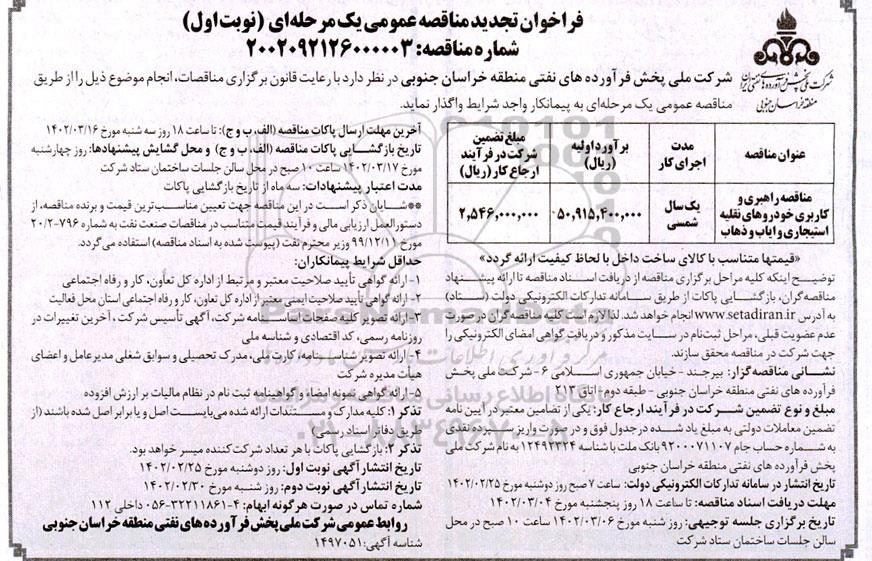 فراخوان تجدید مناقصه عمومی یک مرحله‌ای (نوبت اول)
شماره مناقصه: ۲۰۰۲۰۹۲۱۲۶۰۰۰۰۰۳
شرکت ملی پخش فرآورده‌های نفتی ایران
منطقه خراسان جنوبی
شرکت ملی پخش فرآورده های نفتی منطقه خراسان جنوبی در نظر دارد با رعایت قانون برگزاری مناقصات، انجام موضوع ذیل را از طریق
مناقصه عمومی یک مرحله‌ای به پیمانکار واجد شرایط واگذار نماید.
عنوان مناقصه | مدت اجرای کار | برآورد اولیه (ریال) | مبلغ تضمین شرکت در فرآیند ارجاع کار (ریال)
مناقصه راهبری و کاربری خودروهای نقلیه استیجاری و ایاب و ذهاب | یک سال شمسی | ۵۰,۹۱۵,۴۰۰,۰۰۰ | ۲,۵۴۶,۰۰۰,۰۰۰
«قیمتها متناسب با کالای ساخت داخل با لحاظ کیفیت ارائه گردد»
توضیح اینکه کلیه مراحل برگزاری مناقصه از دریافت اسناد مناقصه تا ارائه پیشنهاد
مناقصه‌گران، بازگشایی پاکات از طریق سامانه تدارکات الکترونیکی دولت (ستاد)
به آدرس www.setadiran.ir انجام خواهد شد. لذا لازم است کلیه مناقصه گران در صورت
عدم عضویت قبلی، مراحل ثبت‌نام در سایت مذکور و دریافت گواهی امضای الکترونیکی را
جهت شرکت در مناقصه محقق سازند.
نشانی مناقصه‌گزار: بیرجند - خیابان جمهوری اسلامی ۶ - شرکت ملی پخش
فرآورده های نفتی منطقه خراسان جنوبی - طبقه دوم - اتاق ۲۱۳
مبلغ و نوع تضمین شرکت در فرآیند ارجاع کار: یکی از تضامین معتبر در آیین نامه
تضمین معاملات دولتی به مبلغ یاد شده در جدول فوق و در صورت واریز سپرده نقدی
به شماره حساب جام ۹۲۰۰۰۷۱۱۰۷ بانک ملت با شناسه ۱۲۴۹۳۳۲۴ به نام شرکت ملی
پخش فرآورده های نفتی منطقه خراسان جنوبی
تاریخ انتشار در سامانه تدارکات الکترونیکی دولت: ساعت ۷ صبح روز دوشنبه مورخ ۱۴۰۲/۰۲/۲۵
مهلت دریافت اسناد مناقصه: تا ساعت ۱۸ روز پنجشنبه مورخ ۱۴۰۲/۰۳/۰۴
تاریخ برگزاری جلسه توجیهی: روز شنبه مورخ ۱۴۰۲/۰۳/۰۶ ساعت ۱۰ صبح در محل
سالن جلسات ساختمان ستاد شرکت
آخرین مهلت ارسال پاکات مناقصه (الف، ب و ج): تا ساعت ۱۸ روز سه شنبه مورخ ۱۴۰۲/۰۳/۱۶
تاریخ بازگشایی پاکات مناقصه (الف، ب و ج) و محل گشایش پیشنهادها: روز چهارشنبه
مورخ ۱۴۰۲/۰۳/۱۷ ساعت ۱۰ صبح در محل سالن جلسات ساختمان ستاد شرکت
مدت اعتبار پیشنهادات: سه ماه از تاریخ بازگشایی پاکات
**شایان ذکر است در این مناقصه جهت تعیین مناسب‌ترین قیمت و برنده مناقصه، از
دستورالعمل ارزیابی مالی و فرآیند قیمت متناسب در مناقصات صنعت نفت به شماره ۷۹۶-۲۰/۲
مورخ ۹۹/۱۲/۱۱ وزیر محترم نفت (پیوست شده به اسناد مناقصه) استفاده می‌گردد.
حداقل شرایط پیمانکاران:
۱- ارائه گواهی تأیید صلاحیت معتبر و مرتبط از اداره کل تعاون، کار و رفاه اجتماعی
۲- ارائه گواهی تأیید صلاحیت ایمنی معتبر از اداره کل تعاون، کار و رفاه اجتماعی استان محل فعالیت
۳- ارائه تصویر کلیه صفحات اساسنامه شرکت، آگهی تأسیس شرکت، آخرین تغییرات در
روزنامه رسمی، کد اقتصادی و شناسه ملی
۴- ارائه تصویر شناسنامه، کارت ملی، مدرک تحصیلی و سوابق شغلی مدیرعامل و اعضای
هیأت مدیره شرکت
۵- ارائه گواهی نمونه امضاء و گواهینامه ثبت نام در نظام مالیات بر ارزش افزوده
تذکر ۱: کلیه مدارک و مستندات ارائه شده می‌بایست اصل و یا برابر اصل شده باشند (از
طریق دفاتر اسناد رسمی)
تذکر ۲: بازگشایی پاکات با هر تعداد شرکت‌کننده میسر خواهد بود.
تاریخ انتشار آگهی نوبت اول: روز دوشنبه مورخ ۱۴۰۲/۰۲/۲۵
تاریخ انتشار آگهی نوبت دوم: روز شنبه مورخ ۱۴۰۲/۰۲/۳۰
شماره تماس در صورت هرگونه ابهام: ۴-۳۲۲۱۱۸۶۱-۰۵۶ داخلی ۱۱۲
روابط عمومی شرکت ملی پخش فرآورده های نفتی منطقه خراسان جنوبی
شناسه آگهی: ۱۴۹۷۰۵۱